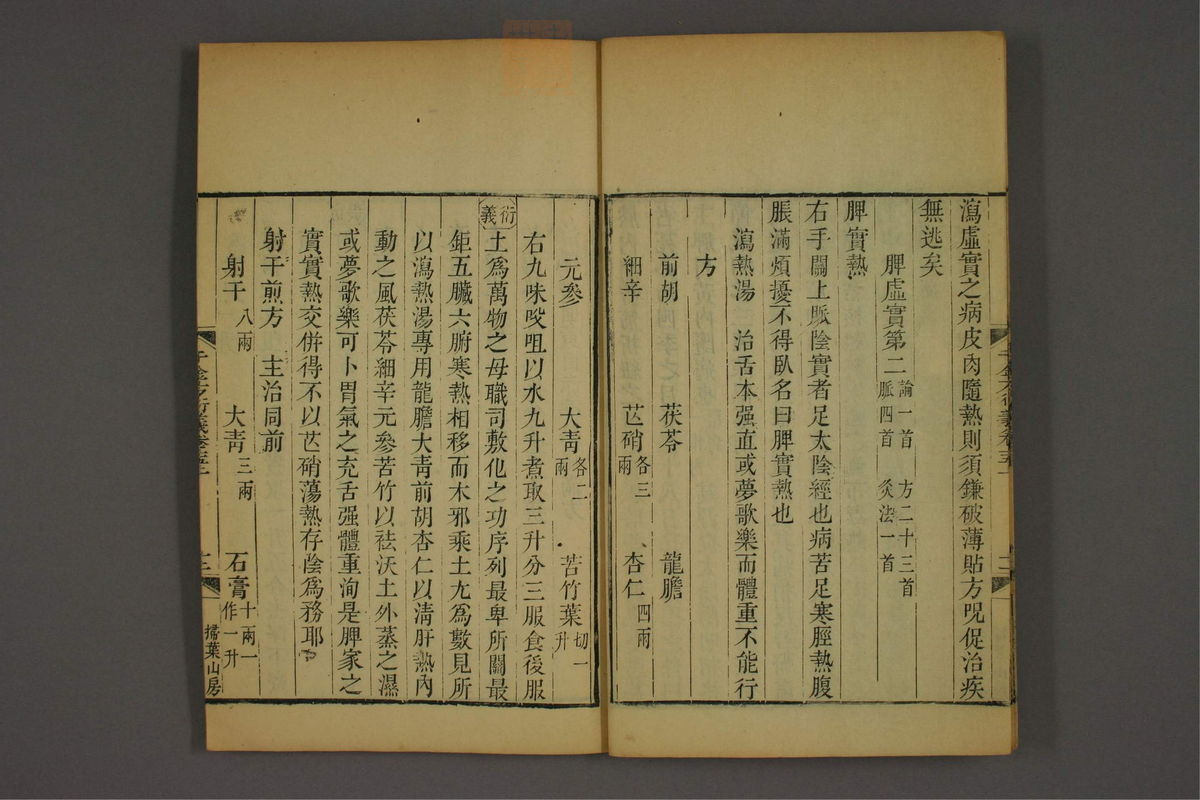 瀉虛實之病皮肉隨熱則須鎌破薄貼方呪促治疾
無逃矣
脾虛實第二 論一首 方二十三首 脈四首 灸法一首
脾實熱
右手關上脈陰實者足太陰經也病苦足寒脛熱腹
脹滿煩擾不得臥名曰脾實熱也
瀉熱湯 治舌本强直或夢歌樂而體重不能行
方
前胡 茯苓 龍膽
細辛 芒硝各三兩 杏仁四兩
元參 大青各二兩 苦竹葉切一升
右九味㕮咀以水九升煮取三升分三服食後服
衍義
土爲萬物之母職司敷化之功序列最卑所關最
鉅五臟六腑寒熱相移而木邪乘土尤爲數見所
以瀉熱湯專用龍膽大青前胡杏仁以清肝熱內
動之風茯苓細辛元參苦竹以祛沃土外蒸之濕
或夢歌樂可卜胃氣之充舌强體重洵是脾家之
實實熱交併得不以芒硝蕩熱存陰爲務耶
射干煎方 主治同前
射干八兩 大青三兩 石膏十兩一作一升
千金方衍義卷
掃葉山房